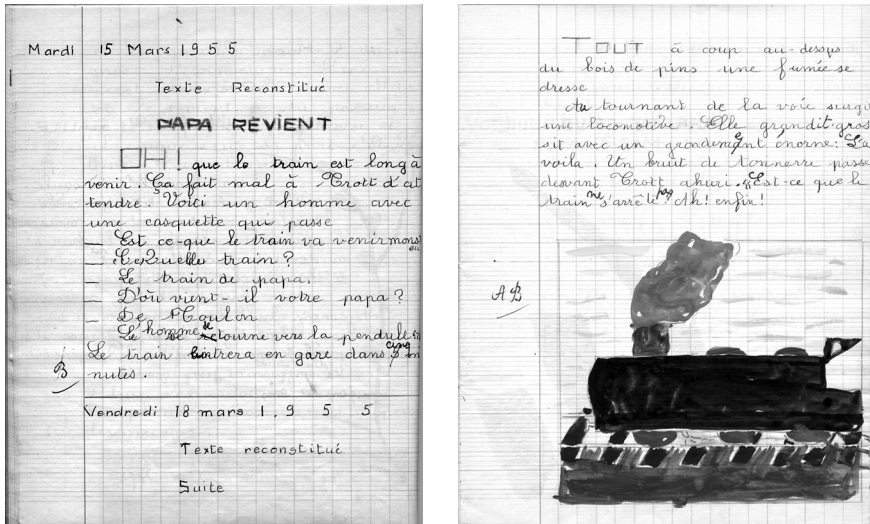 Mardi 15 Mars 1955
Texte Reconstitué
PAPA REVIENT
OH! que le train est long à
venir. Ça fait mal à Trott d'at
tendre. Voici un homme avec
une casquette qui passe
— Est ce-que le train va venir mons
— Quelle train?
— Le train de papa.
— D'où vient-il votre papa?
— De Toulon
L'homme se tourne vers la pendule
Le train entrera en gare dans cinq
nutes.
B
Vendredi 18 mars 1.9 5 5
Texte reconstitué
Suite
TOUT à coup au-dessus
du bois de pins une fumée se
dresse
Au tournant de la voie surgi
une locomotive. Elle grandit gros
sit avec un grondement énorme: La
voila. Un bruit de tonnerre passe
devant Trott ahuri. "Est-ce que le
train ne s'arrête pas? Ah! enfin!
A B